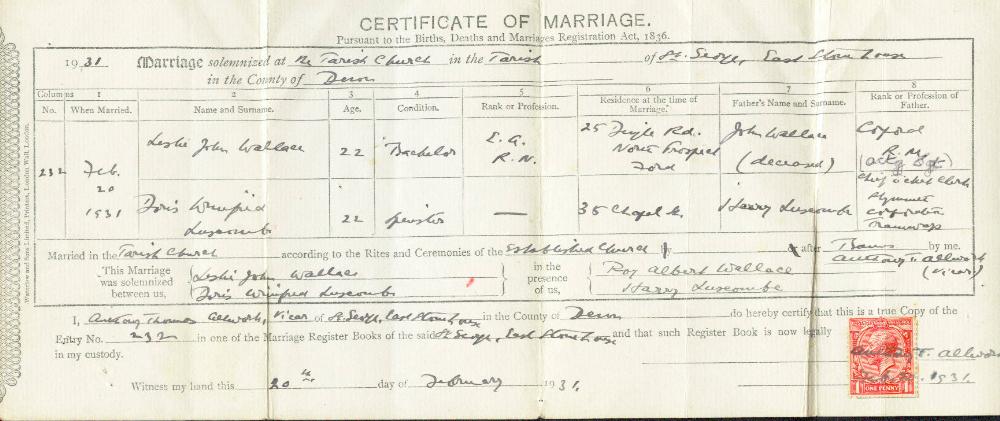 CERTIFICATE OF MARRIAGE.
Pursuant to the Births, Deaths and Marriages Registration Act, 1836.
1931 Marriage solemnized at the Parish Church in the Parish of St. George, East Stonehouse
in the County of Devon
Columns 1 2 3 4 5 6 7 8
No. When Married. Name and Surname. Age. Condition. Rank or Profession. Residence at the time of Marriage. Father's Name and Surname. Rank or Profession of Father.
232 Feb. 20 1931
Leslie John Wallace 22 Bachelor E.A. R.N. 25 Rd. North Prospect Ford John Wallace (deceased) R.M. (actg Sgt)
Doris Winifred Luscombe 22 Spinster — 35 Chapel St. Harry Luscombe Chief Ticket Clerk Plymouth Corporation Tramways
Married in the Parish Church according to the Rites and Ceremonies of the Established Church by after Banns by me.
Anthony T. Allwork (Vicar)
This Marriage was solemnized between us,
Leslie John Wallace
Doris Winifred Luscombe
in the presence of us,
Roy Albert Wallace
Harry Luscombe
I, Anthony Thomas Allwork, Vicar of St. George, East Stonehouse in the County of Devon do hereby certify that this is a true Copy of the
Entry No. 232 in one of the Marriage Register Books of the said St. George, East Stonehouse and that such Register Book is now legally
in my custody.
Anthony T. Allwork
Witness my hand this 20th day of February 1931.
1931.
ONE PENNY
Waterlow and Sons Limited, Printers, London Wall, London.